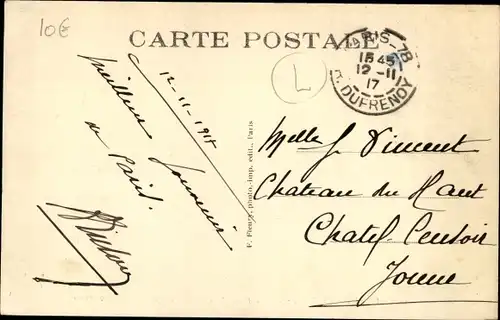 10€
CARTE POSTALE
PARIS-78
15 45
12-11
17
R. DUFRENOY
L
12-11-1917
Meilleur souvenir
de Paris.
F. Fleury, photo.-imp. edit., Paris
Melle J. Vincent
Chateau du Haut
Chatel-Censoir
Yonne